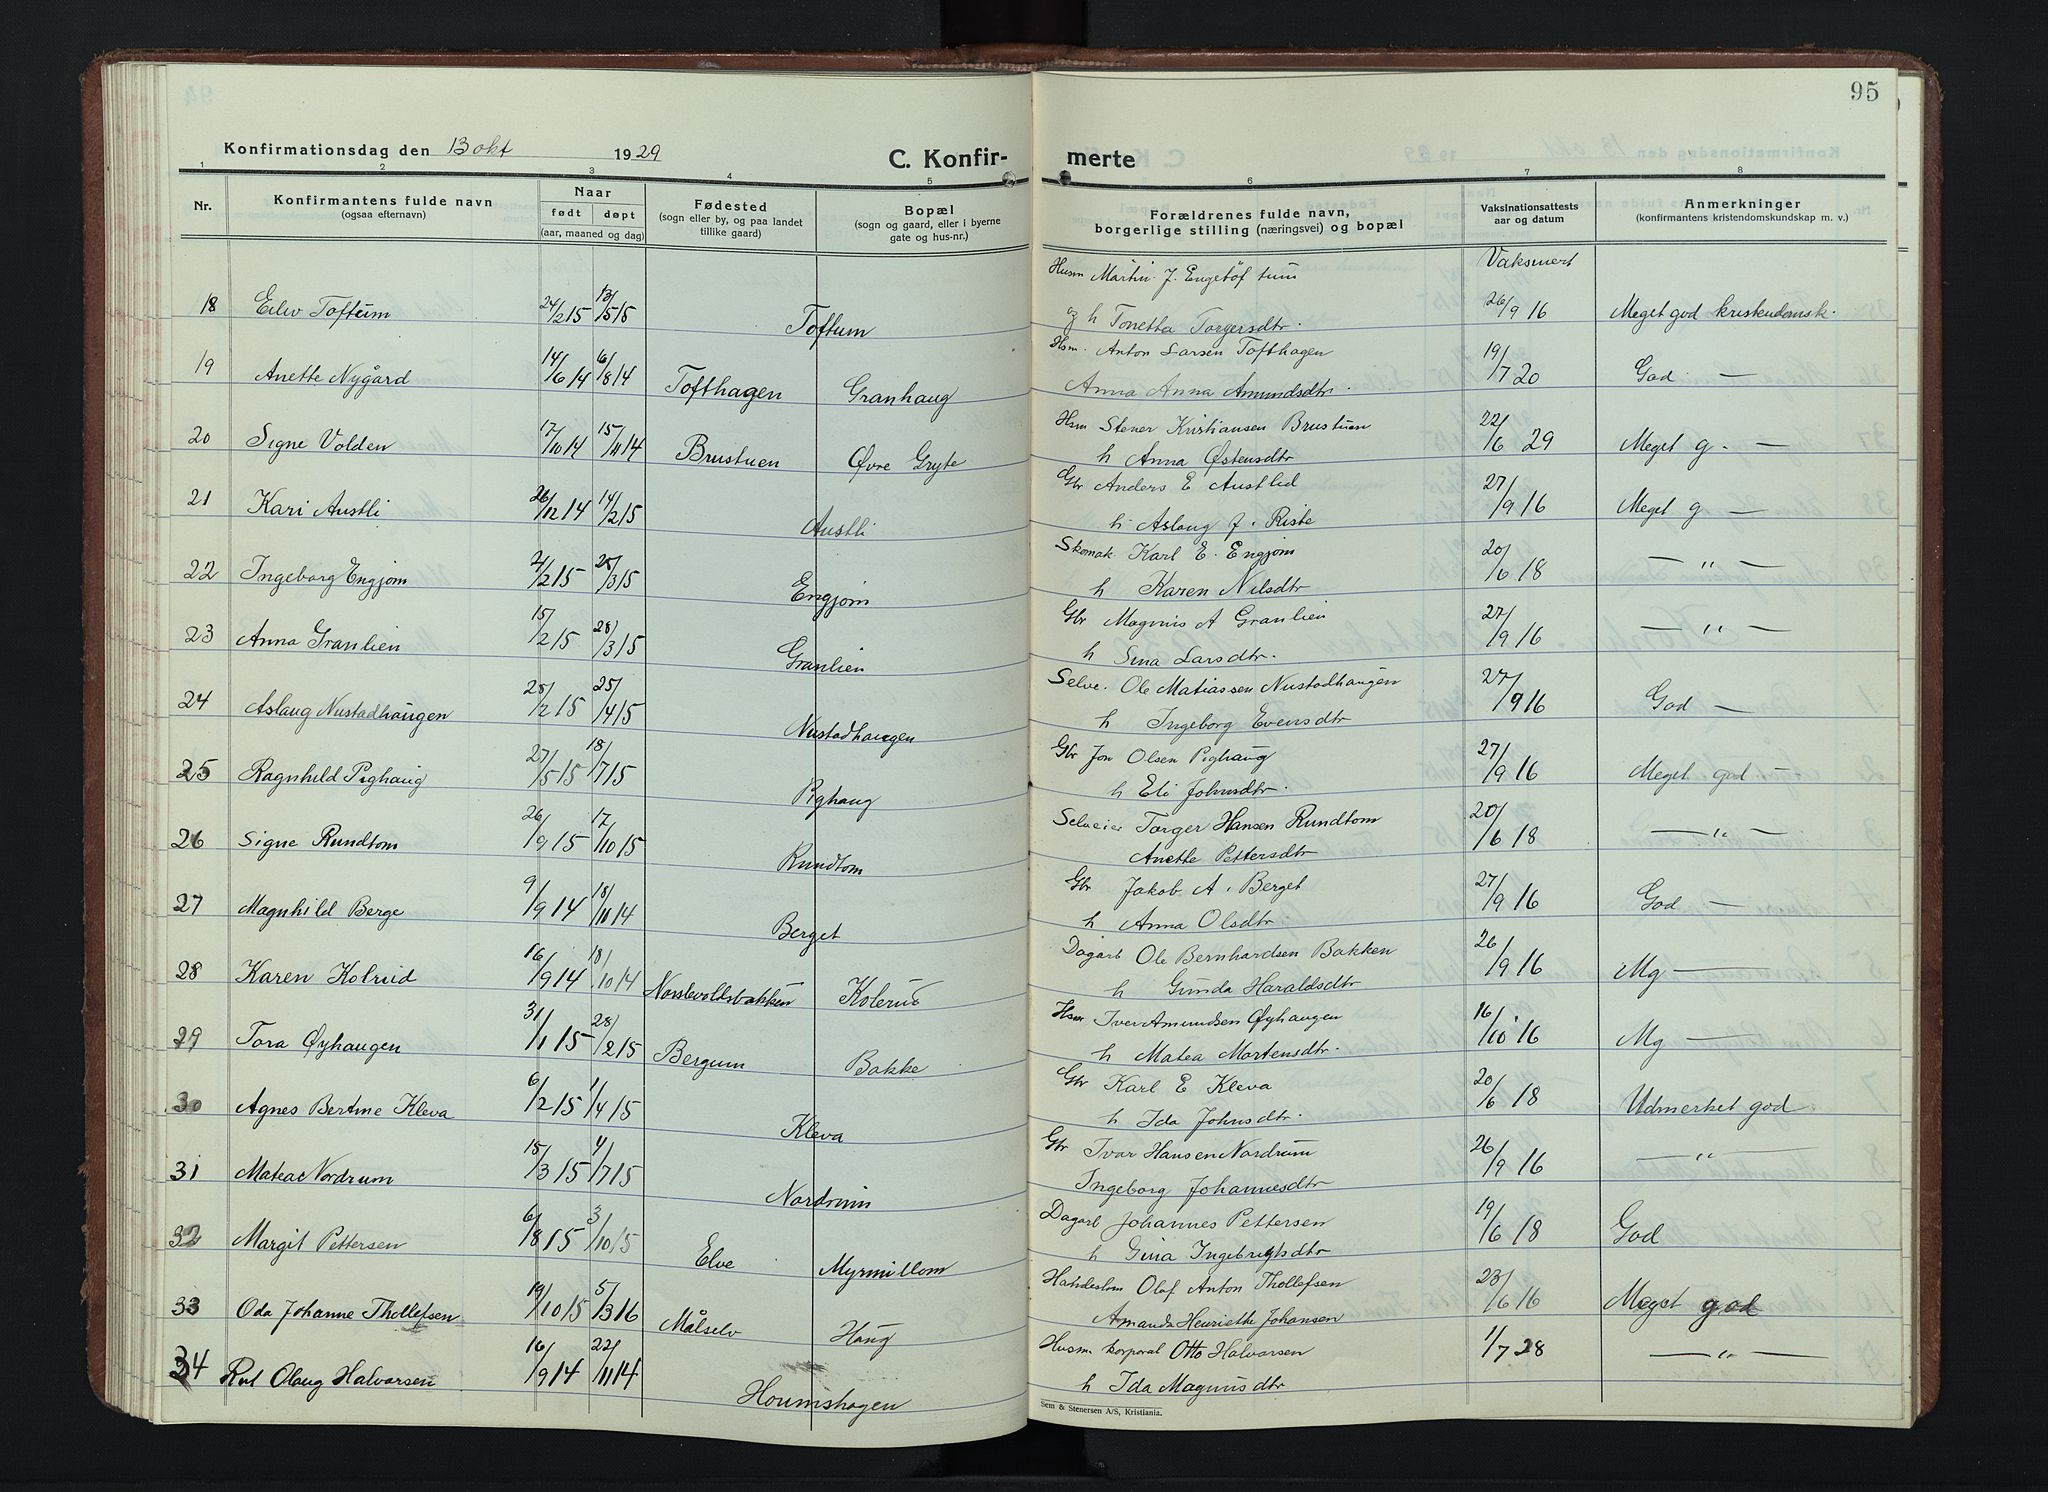 95
Konfirmationsdag den 13 okt 1929
C. Konfir-
merte
1 2 3 4 5 6 7 8
Nr.
Konfirmantens fulde navn
(ogsaa efternavn)
Naar
født døpt
(aar, maaned og dag)
Fødested
(sogn eller by, og paa landet
tillike gaard)
Bopæl
(sogn og gaard, eller i byerne
gate og hus-nr.)
Forældrenes fulde navn,
borgerlige stilling (næringsvei) og bopæl
Vaksinationsattests
aar og datum
Anmerkninger
(konfirmantens kristendomskundskap m. v.)
Husm Martin J. Engetøftum Vaksinert
18 Eiliv Toftum 24/2 15 13/5 15 Toftum og h Tonetta Torgersdtr. 26/9 16 Meget god kristendomsk.
Hsm. Anton Larsen Tofthagen
19 Anette Nygård 14/6 14 16/8 14 Tofthagen Granhaug Anna Anna Amundsdtr. 19/7 20 God —
Hsm Stener Kristiansen Brustuen
20 Signe Volden 17/10 14 15/11 14 Brustuen Øvre Gryte h Anna Østensdtr 22/6 29 Meget g. —
Gbr Anders E Austlid
21 Kari Austli 26/12 14 14/2 15 Austli h Aslaug J. Riste 27/9 16 Meget g —
Skomak Karl E. Engjom
22 Ingeborg Engjom 2/2 15 25/3 15 Engjom h Karen Nilsdtr 20/6 18 — " —
Gbr Magnus A Granlien
23 Anna Granlien 15/2 15 28/3 15 Granlien h Sina Larsdtr. 27/9 16 — " —
Selve. Ole Matiassen Nustadhaugen
24 Aslaug Nustadhaugen 28/2 15 25/4 15 Nustadhaugen h Ingeborg Evensdtr 27/9 16 God —
Gbr Jon Olsen Pighaug
25 Ragnhild Pighaug 27/5 15 18/7 15 Pighaug h Eli Johnsdtr. 27/9 16 Meget god —
Selveier Torger Hansen Rundtom
26 Signe Rundtom 26/9 15 17/10 15 Rundtom Anette Pettersdtr 20/6 18 — " —
Gbr Jakob A. Berget
27 Magnhild Berge 9/9 14 18/11 14 Berget h Anna Olsdtr 27/9 16 God —
Dagarb Ole Bernhardsen Bakken
28 Karen Kolrud 16/9 14 18/10 14 Norslevoldsbakken Kolerud h Gunda Haraldsdtr 26/9 16 Mg —
Hsm Iver Amundsen Øyhaugen
29 Tora Øyhaugen 31/1 15 28/2 15 Bergum Bakke h Matea Mortensdtr. 16/10 16 Mg —
Gbr Karl E Kleva
30 Agnes Bertine Kleva 6/2 15 1/4 15 Kleva h Ida Johnsdtr. 20/6 18 Udmerket god
Gbr Ivar Hansen Nordrum
31 Matea Nordrum 15/3 15 4/7 15 Nordrum Ingeborg Johannesdtr 26/9 16 — " —
Dagarb Johannes Pettersen
32 Margit Pettersen 6/8 15 3/10 15 Elve Myrmillom h Gina Ingebrigtsdtr 19/6 18 God
Handelsm Olaf Anton Thollefsen
33 Oda Johanne Thollefsen 19/10 15 5/3 16 Målselv Haug Amanda Henriette Johansen 23/6 16 Meget god
Husm korporal Otto Halvorsen
34 Rut Olaug Halvorsen 16/9 14 22/11 14 Houmshagen h Ida Magnusdtr 1/7 28 — " —
Sem & Stenersen A/S, Kristiania.